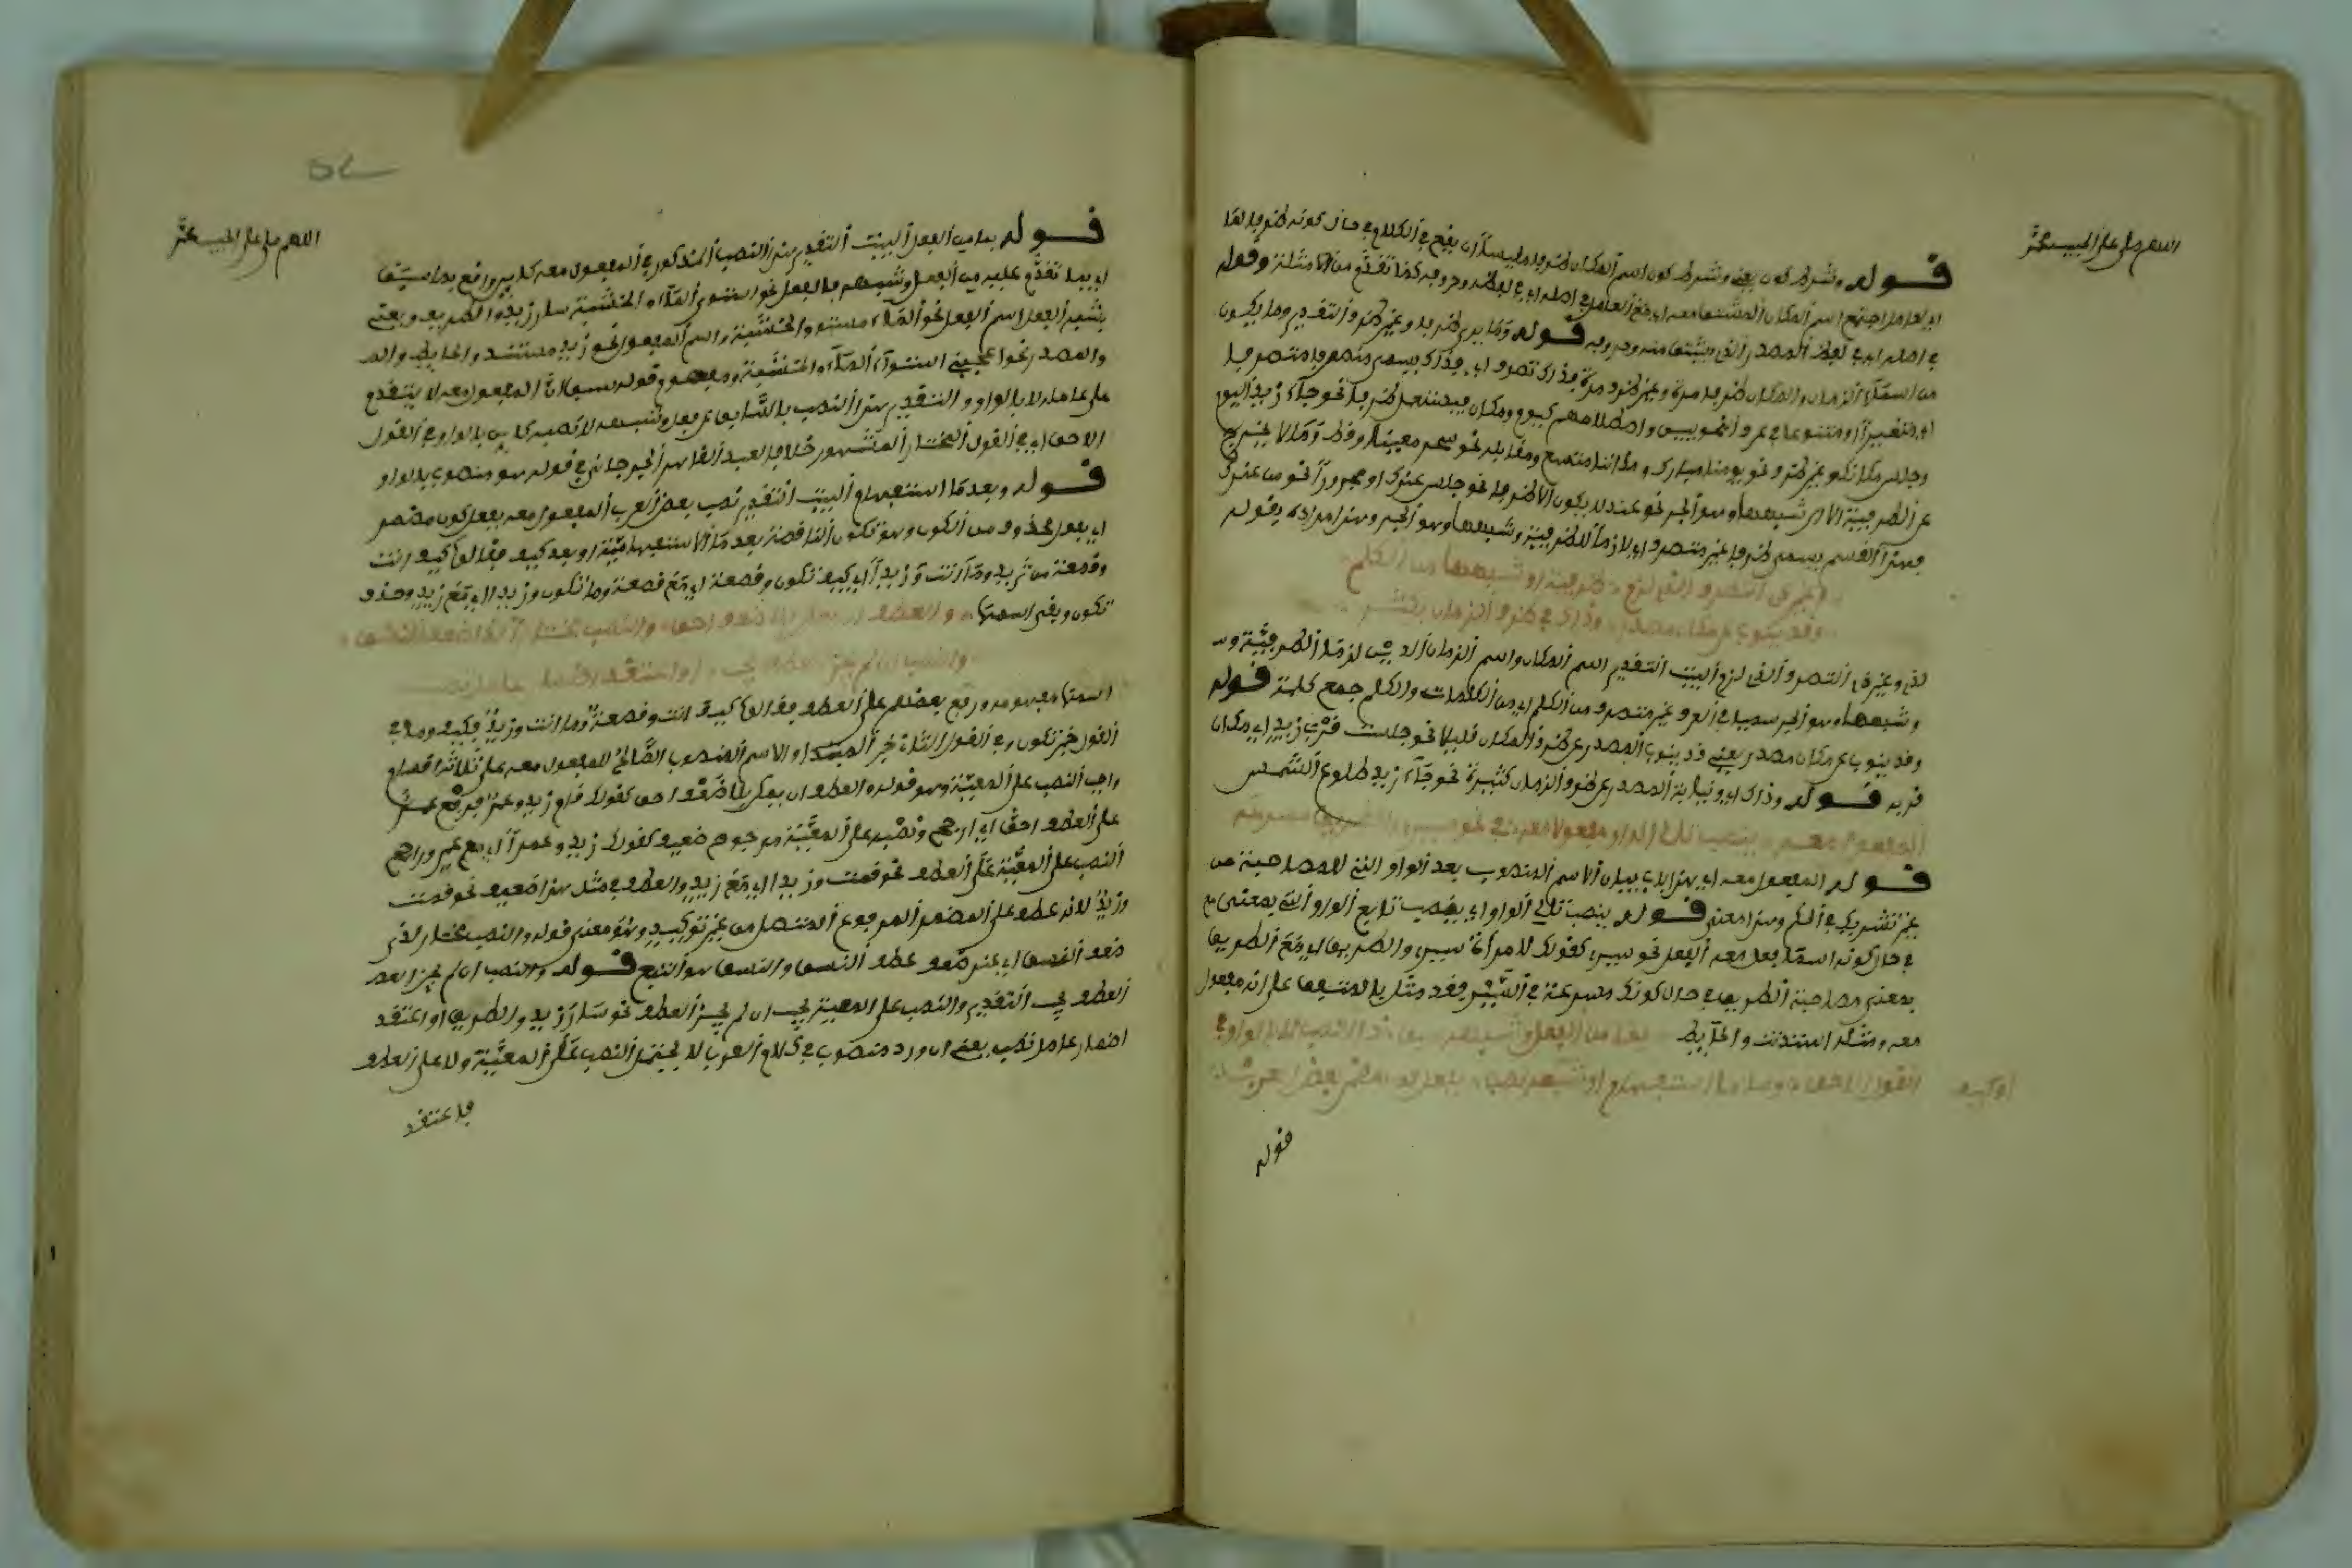 اللهم صل على الحبيب محمد
قوله وشرط كون يعني وشرط كون اسم المكان ظرفا مقيسا ان يقع في الكلام في حال كونه ظرفا لما
اي لعامل اجتمع اسم المكان المشتق معه اي مع العامل في اصله اي في لفظه وحروفه كما تقدم من الامثلة وقوله
في اصله اي في لفظ المصدر الذي يشتق منه وحروفه قوله وما يرى ظرفا وغير ظرف التقدير وما يكون
من اسماء الزمان والمكان ظرفا مرة وغير ظرف مرة فذاك تصرف اي فذاك يسمى متصرفا متصرفا
اي متغيرا ومتنوعا في عرف النحويين واصطلاحهم كيوم ومكان فيستعمل ظرفا نحو جاء زيد اليوم
وجلس مكانك وغير ظرف نحو يومنا مبارك ومكاننا متسع ومقابله نحو سحر معينا وقط وما لا يخرج
عن الظرفية الا الى شبهها وهو الجر نحو عند لا يكون الا ظرفا نحو جلس عندك او مجرورا نحو من عندك
فهذا القسم يسمى ظرفا غير متصرف اي لازما للظرفية وشبهها وهو الجر وهذا مراده بقوله
وغير ذي التصرف الذي لزم ظرفية او شبهها من الكلم
وقد ينوب عن مكان مصدر وذاك في ظرف الزمان يكثر
لفي وغير ذي التصرف الذي لزم البيت التقدير اسم المكان واسم الزمان الذين لزما الظرفية و
وشبهها وهو الجر سميا في العرف غير متصرف من الكلم اي من الكلمات والكلم جمع كلمة قوله
وقد ينوب عن مكان مصدر يعني قد ينوب المصدر عن ظرف المكان قليلا نحو جلست قرب زيد اي مكان
قربه قوله وذاك اي ونيابة المصدر عن ظرف الزمان كثيرة نحو جاء زيد طلوع الشمس
المفعول معه ينصب تالي الواو مفعولا معه في نحو سيري والطريق مسرعه
قوله المفعول معه اي هذا باب بيان الاسم المنصوب بعد الواو التي للمصاحبة من
غير تشريك في الحكم وهذا معنى قوله ينصب تالي الواو اي ينصب تابع الواو التي بمعنى مع
في حال كونه اسما يفعل معه الفعل نحو سيري كقولك لامرأة سيري والطريق اي مع الطريق
بمعنى مصاحبة الطريق في حال كونك مسرعة في السير فقد مثل بالمتفق على انه مفعول
معه ومثله استندت والحايط بما من الفعل وشبهه سبق ذا النصب لا بالواو في
القول الاحق وبعد ما استفهام او كيف نصب بفعل كون مضمر بعض العرب
او كيف
قوله
اللهم صل على الحبيب محمد
قوله بما من الفعل البيت التقدير هذا النصب المذكور في المفعول معه كاين وواقع بما سبق
اي بما تقدم عليه من الفعل وشبهه فالفعل نحو استوى الماء والخشبة سار زيد والطريق ويعني
بشبه الفعل اسم الفعل نحو الماء مستو والخشبة واسم المفعول نحو زيد مستند والحايط والمصدر
والمصدر نحو اعجبني استواء الماء والخشبة ومفهوم قوله سبق ان المفعول معه لا يتقدم
على عامله لا بالواو والتقدير هذا النصب بالسابق عن فعل وشبهه لا نصبه كاين بالواو في القول
الاحق اي في القول المختار المشهور خلافا لعبد القاهر الجرجاني في قوله هو منصوب بالواو
قوله وبعد ما استفهام البيت التقدير نصب بعض العرب المفعول معه بفعل كون مضمر
اي بفعل محذوف من الكون وهو تكون الناقصة بعد ما الاستفهامية او بعد كيف فقالوا كيف انت
وقصعة من ثريد وما انت وزيدا اي كيف تكون وقصعة اي مع قصعة وما تكون وزيدا اي مع زيد وحذف
تكون وبقي اسمها والعطف ان يمكن بلا ضعف احق والنصب مختار لدى ضعف النسق
والنصب ان لم يجز العطف يجب او اعتقد اضمار عامل تصب
اسمها مفهومه ورفع بعضهم على العطف فقالوا كيف انت وقصعة وما انت وزيد فكيف وما في
القول خبر تكون وفي القول الثاني خبر المبتدا والاسم المنصوب الصالح للمفعول معه على ثلاثة اقسام
واجب النصب على المعية وهو قوله والعطف ان يمكن بلا ضعف احق كقولك قام زيد وعمر فرفع عمر
على العطف احق اي ارجح ونصبه على المعية مرجوح ضعيف كقولك زيد وعمرا اي مع عمر وراجح
النصب على المعية على العطف نحو قمت وزيدا اي مع زيد والعطف في مثل هذا ضعيف نحو قمت
وزيد لانه عطف على المضمر المرفوع المتصل من غير توكيد وهو معنى قوله والنصب مختار لدى
ضعف النسق اي عند ضعف عطف النسق والنسق هو التتبع قوله والنصب ان لم يجز العطف
العطف يجب التقدير والنصب على المعية يجب ان لم يجز العطف نحو سار زيد والطريق او اعتقد
اضمار عامل تصب يعني ان ورد منصوب في كلام العرب لا يحتمل النصب على المعية ولا على العطف
فاعتقد